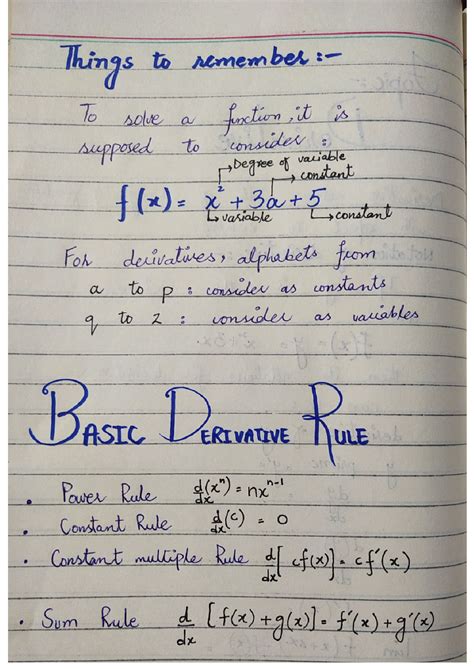 Things to remember :-
To solve a function, it is
supposed to consider :
→ Degree of variable
→ constant
f(x) = x² + 3a + 5
↳ variable ↳ constant
For derivatives, alphabets from
a to p : consider as constants
q to z : consider as variables
BASIC DERIVATIVE RULE
• Power Rule d/dx (xⁿ) = nxⁿ⁻¹
• Constant Rule d/dx (c) = 0
• Constant multiple Rule d/dx [cf(x)] = cf'(x)
• Sum Rule d/dx [f(x) + g(x)] = f'(x) + g'(x)